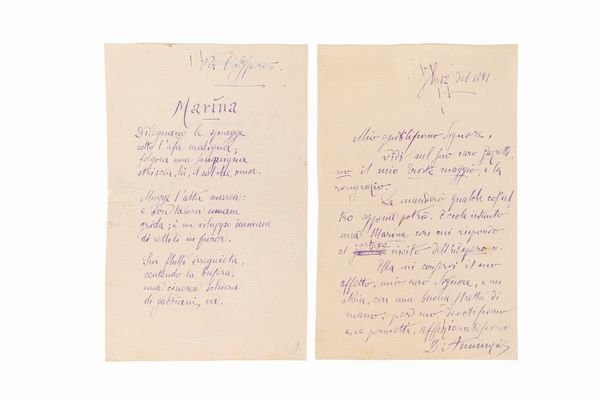 Per l'Espero.
Marina
Dileguano le spiagge
sotto l'afa maligna;
folgora una sanguigna
striscia, là, il sol che muor.
Mugge l'alta marea:
e son talora umane
grida; è un viluppo immane
di rettili in furor.
Sui flutti irrequieta,
sentendo la bufera
una cinerea schiera
di gabbiani, via.
12 del 1881
Mio gentilissimo Signore,
vidi nel suo caro
no il mio maggio, e la
ringrazio.
Le manderò qualche cos'al
tro appena potrò. Eccole intanto
una Marina, con cui rispondo
al cortese invito dell'Espero.
Ella mi conservi il suo
affetto, mio caro Signore, e mi
abbia, con una buona stretta di
mano, pel suo devotissimo
e, se permette, affezionatissimo
D'Annunzio